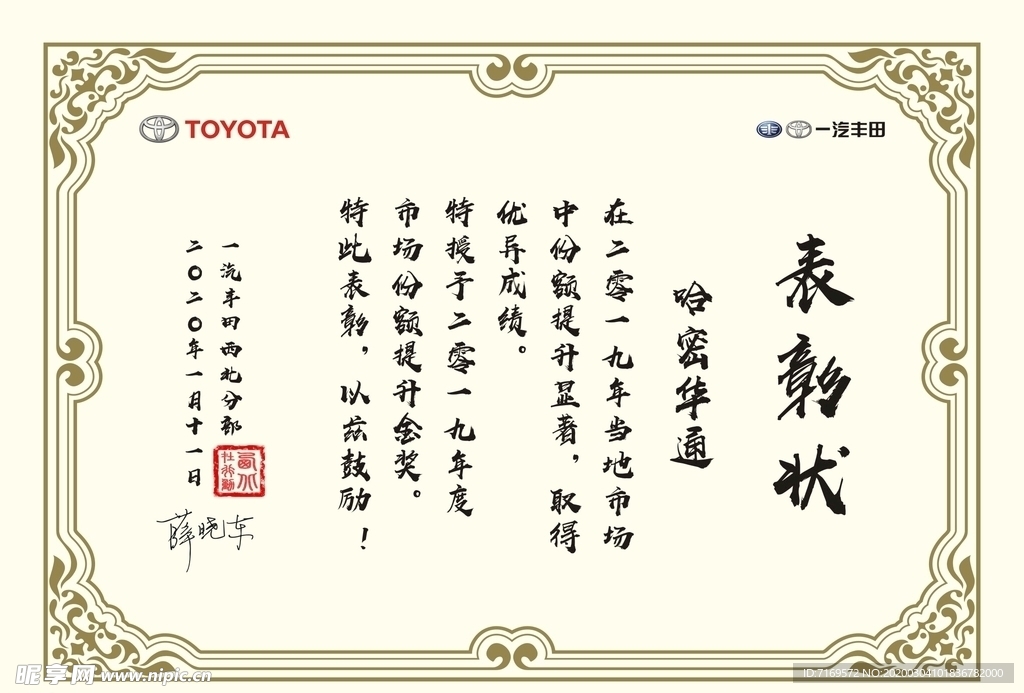 TOYOTA
一汽丰田
表彰状
哈密华通
在二零一九年当地市场
中份额提升显著，取得
优异成绩。
特授予二零一九年度
市场份额提升金奖。
特此表彰，以兹鼓励！
一汽丰田西北分部
二〇二〇年一月十一日
薛晓东
昵享网 www.nipic.cn
ID:7169572 NO:20200304101836782000